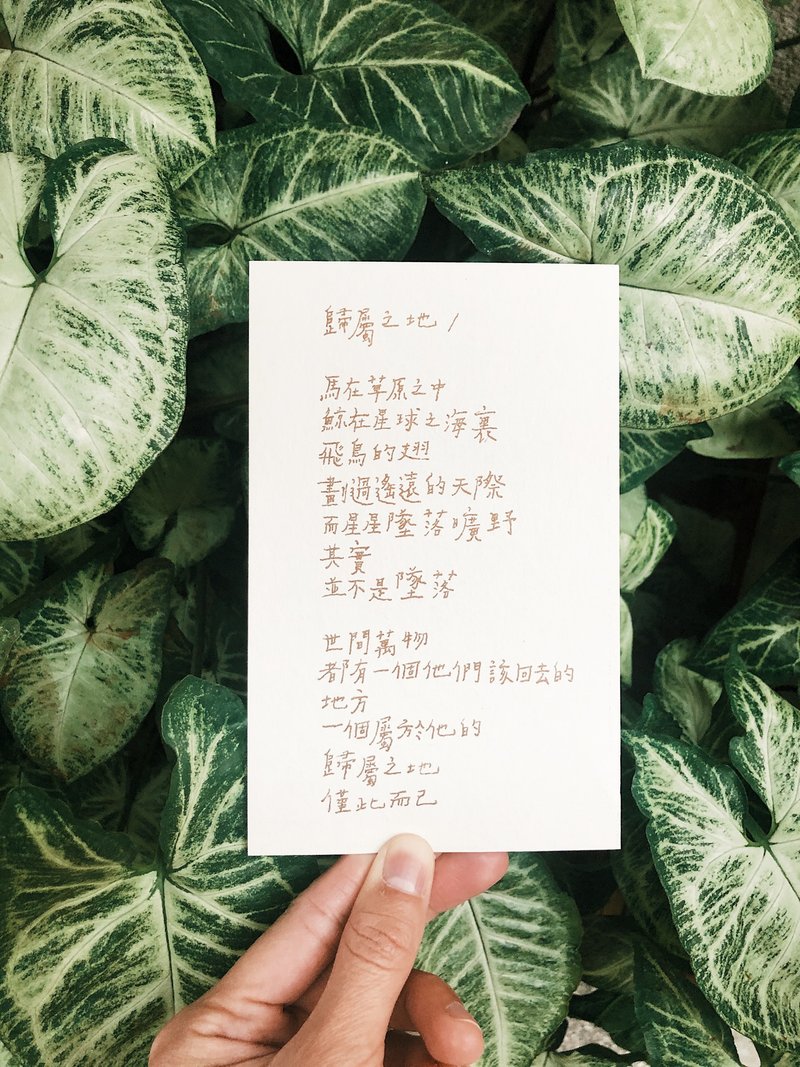 歸屬之地 /
馬在草原之中
鯨在星球之海裏
飛鳥的翅
劃過遙遠的天際
而星星墜落曠野
其實
並不是墜落
世間萬物
都有一個他們該回去的
地方
一個屬於他的
歸屬之地
僅此而已